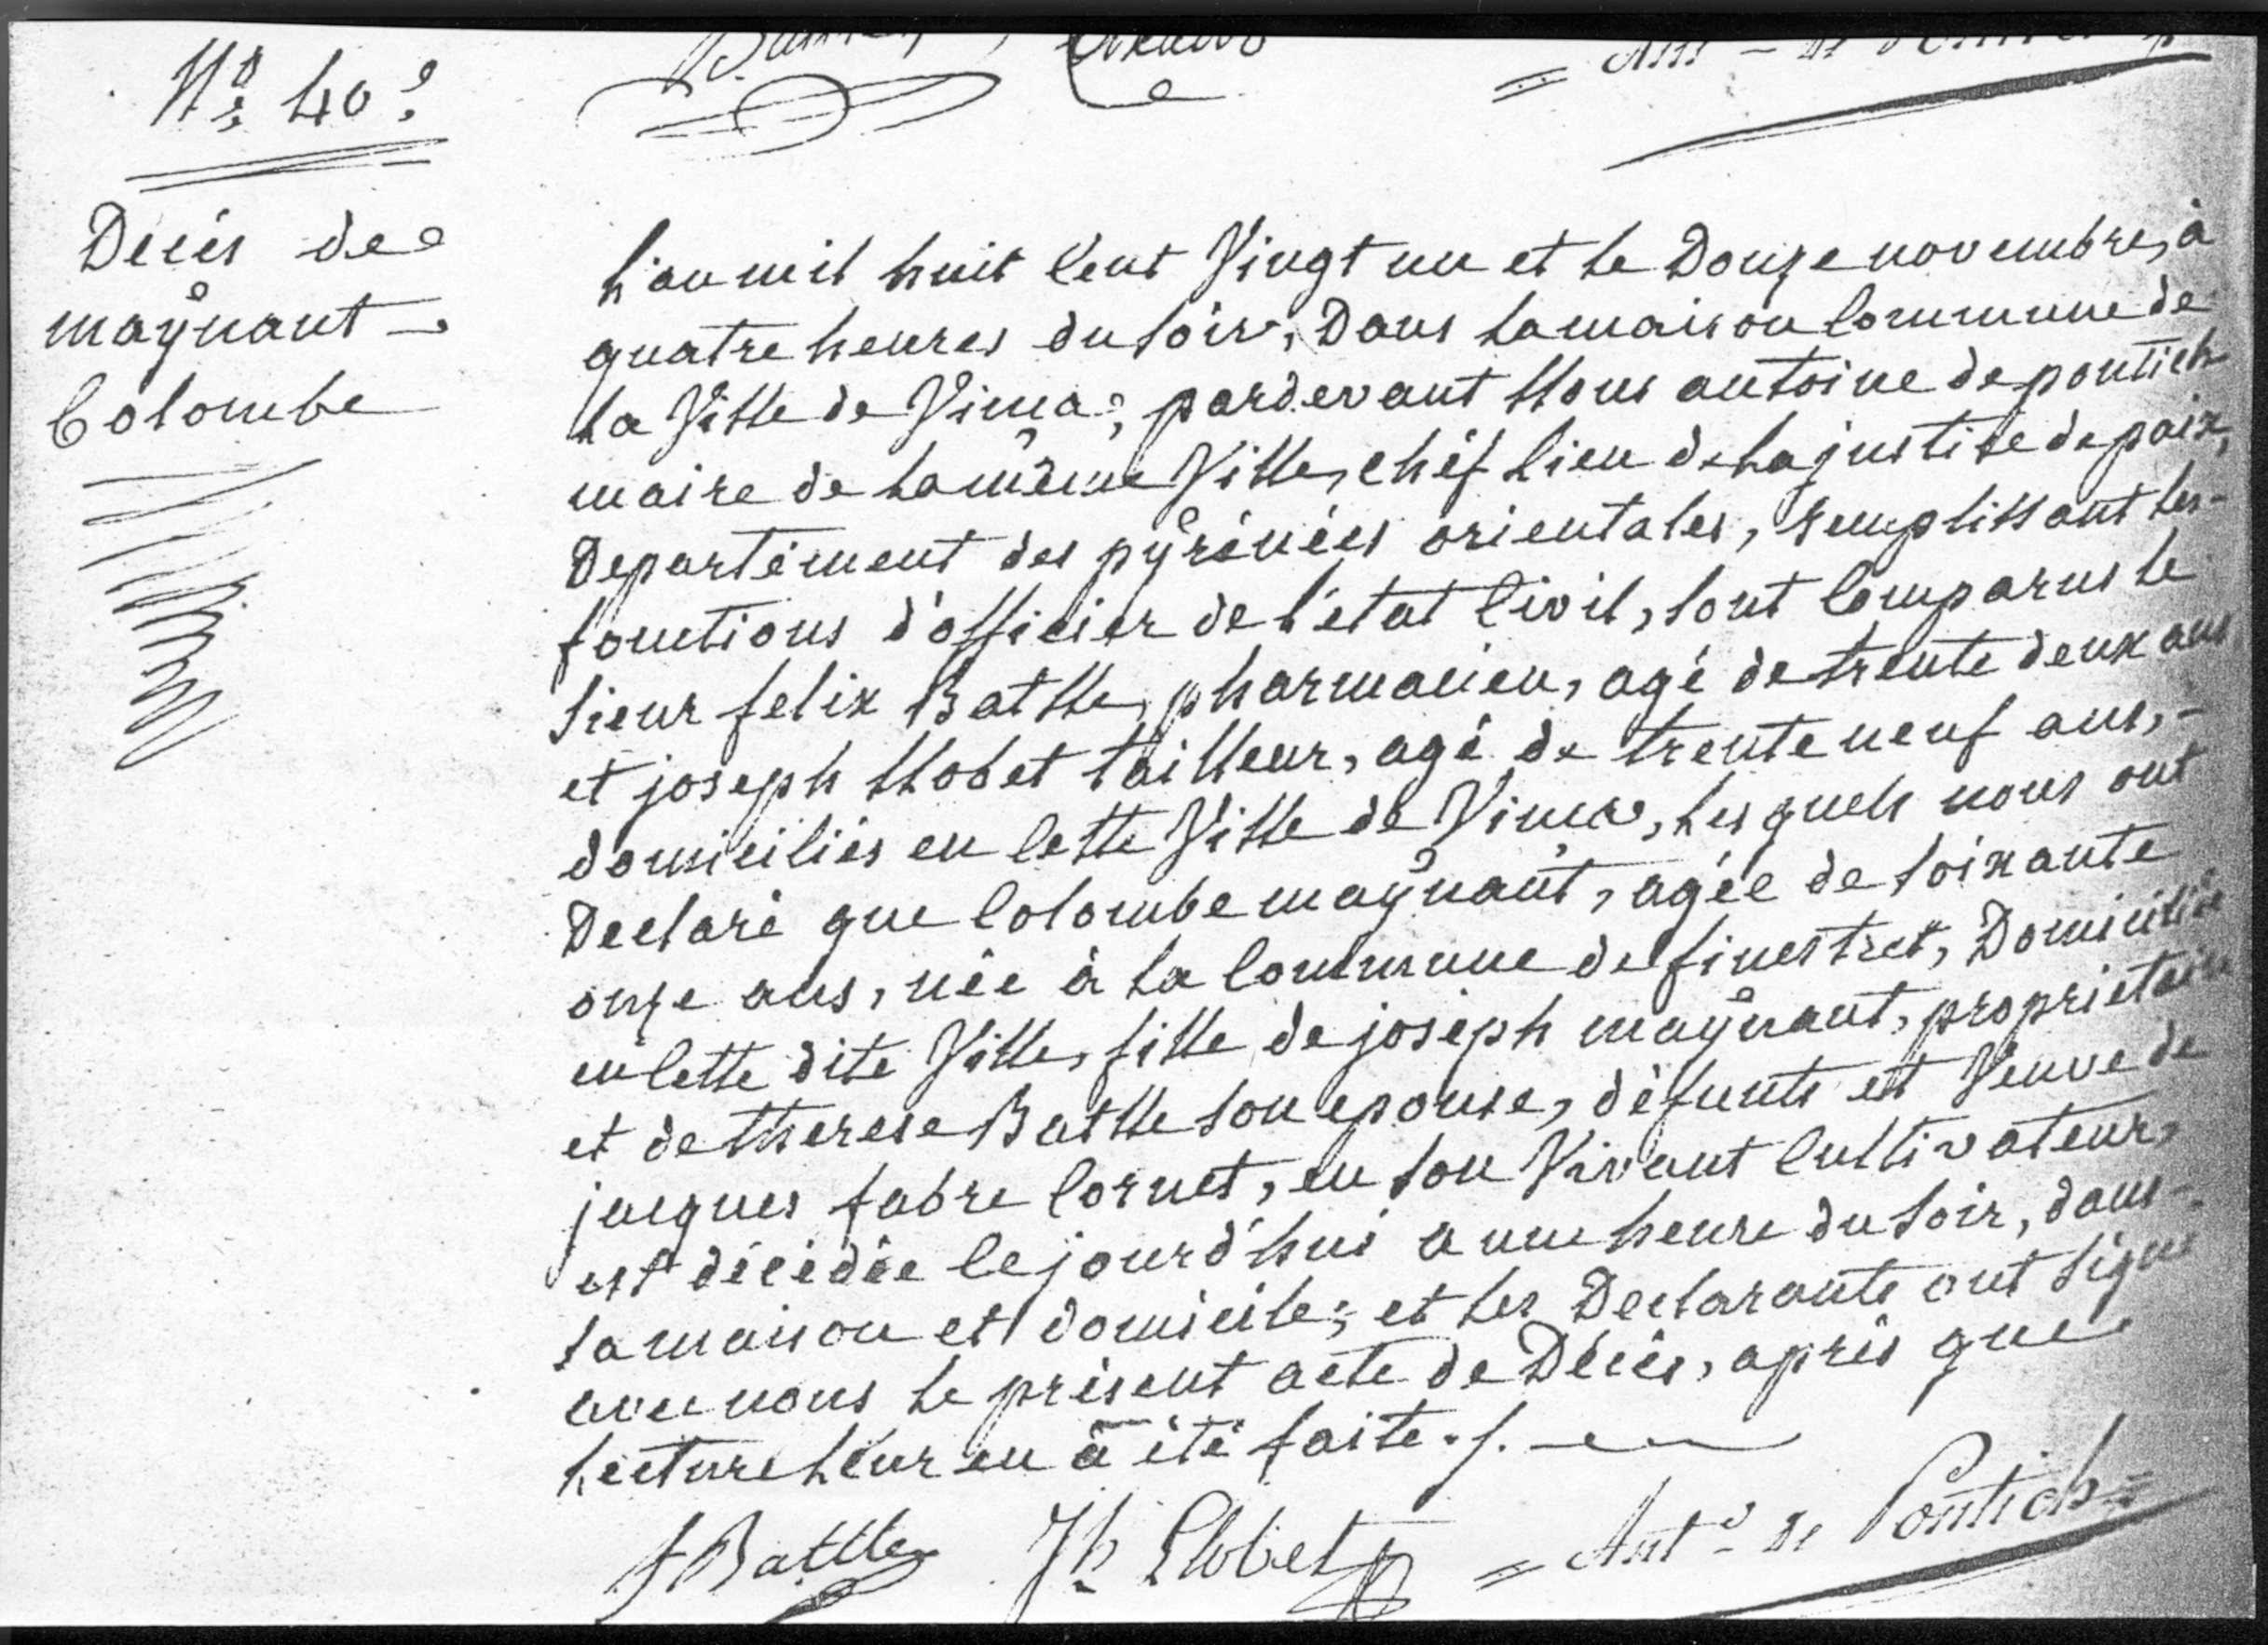 No. 40.
Décès de
maÿnant
Colombe
L'an mil huit Cent Vingt un et le Douze novembre, à
quatre heures du soir, Dans la maison Commune de
la Ville de Vinça, pardevant Nous antoine de pontich
maire de la même Ville, chéf lieu de la justice de paix,
Département des pÿrénées orientales, remplissant les
fonctions d'officier de l'etat Civil, sont Comparus le
sieur felix Batlle, pharmacien, agé de trente deux ans
et joseph Llobet tailleur, agé de trente neuf ans,
domiciliés en Cette Ville de Vinça, lesquels nous ont
Déclaré que Colombe maÿnant, agée de soixante
onze ans, née à la Commune de finestret, Domiciliée
en Cette dite Ville, fille de joseph maÿnant, propriétaire
et de therese Batlle son epouse, défunts et Veuve de
jacques fabre Cornet, en son Vivant Cultivateur,
est décédée Cejourd'hui a une heure du soir, dans
sa maison et domicile; et les Déclarants ont signé
avec nous le présent acte de Décès, après que
lecture leur en à été faite./.
f Batlle Jh Llobet = Antne De Pontich =